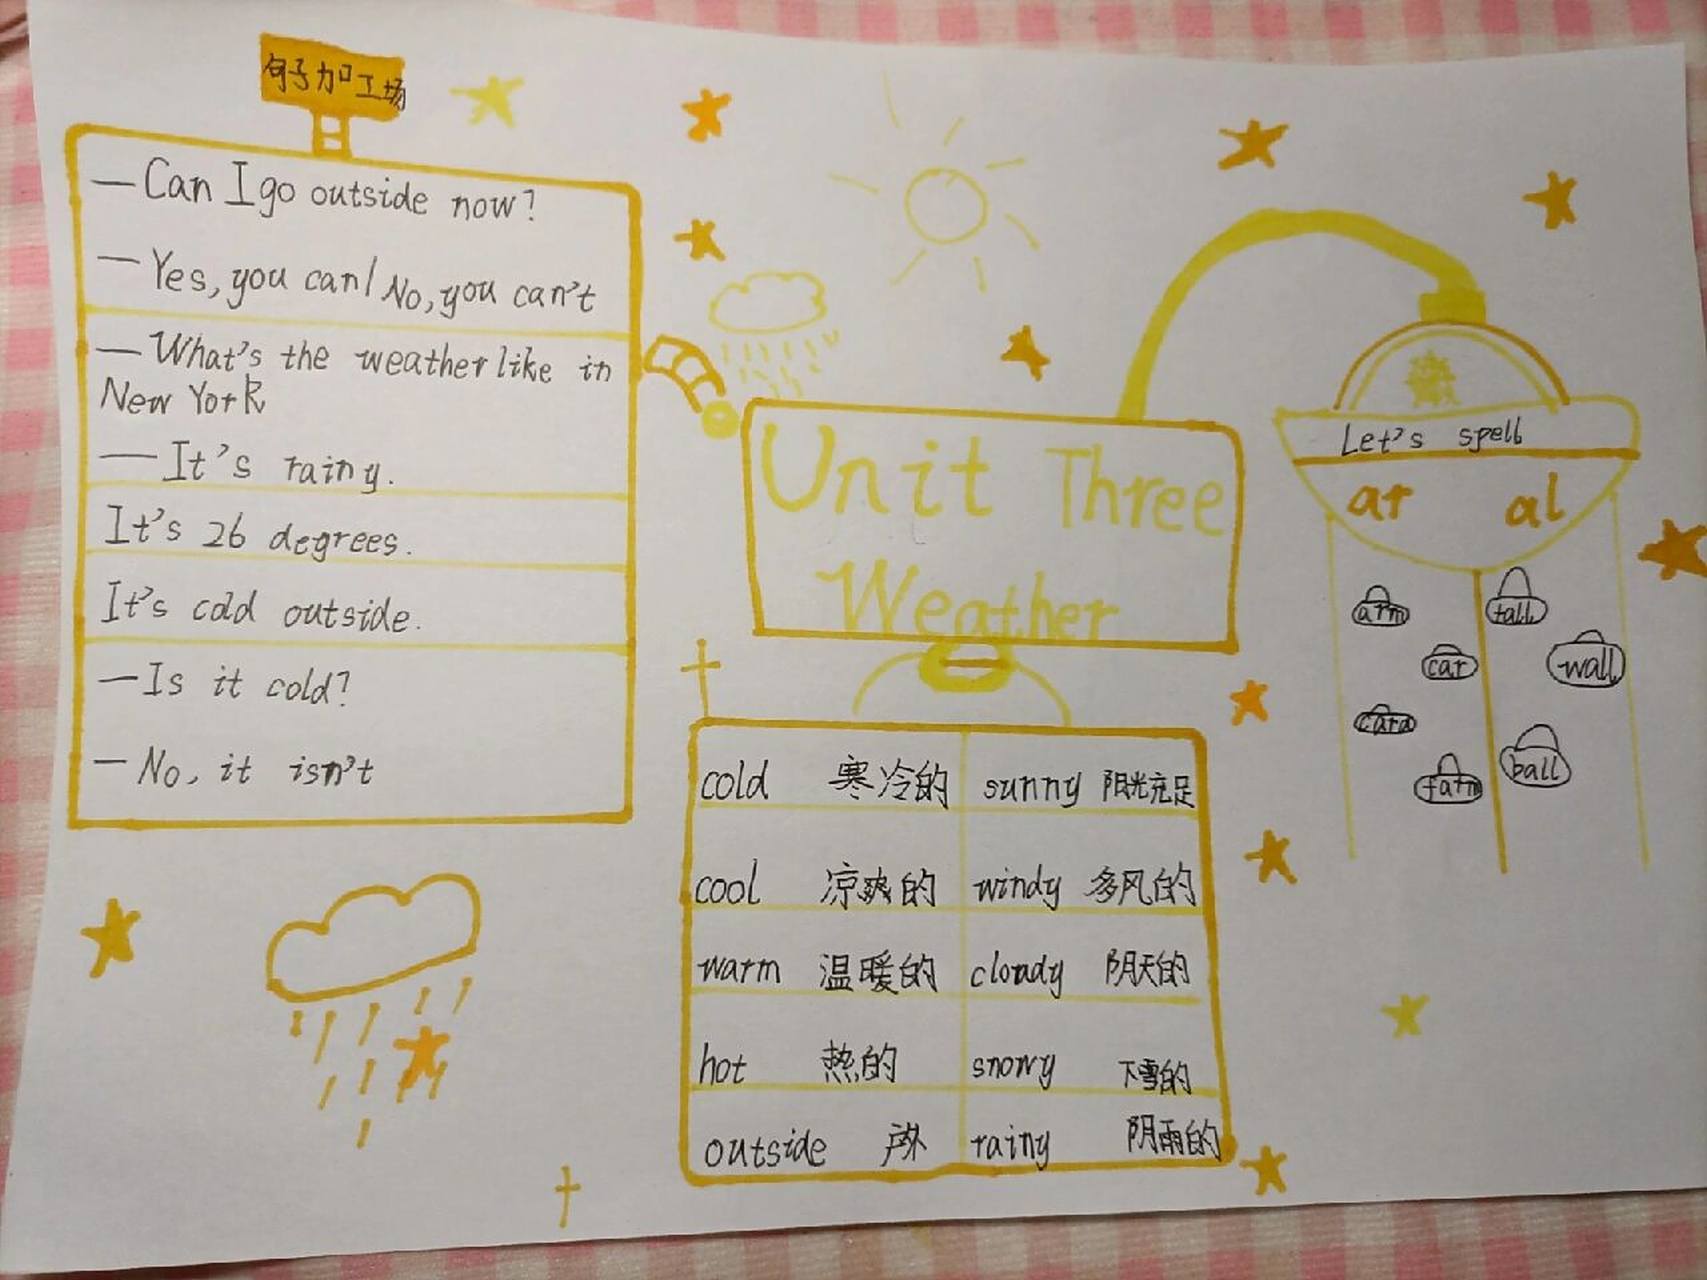 句子加工场
—Can I go outside now?
—Yes, you can/No, you can't
—What's the weather like in
New York
—It's rainy.
It's 26 degrees.
It's cold outside.
—Is it cold?
—No, it isn't
Unit Three
Weather
cold 寒冷的 sunny 阳光充足
cool 凉爽的 windy 多风的
warm 温暖的 cloudy 阴天的
hot 热的 snowy 下雪的
outside 户外 rainy 阴雨的
Let's spell
ar al
arm tall
car wall
card
farm ball